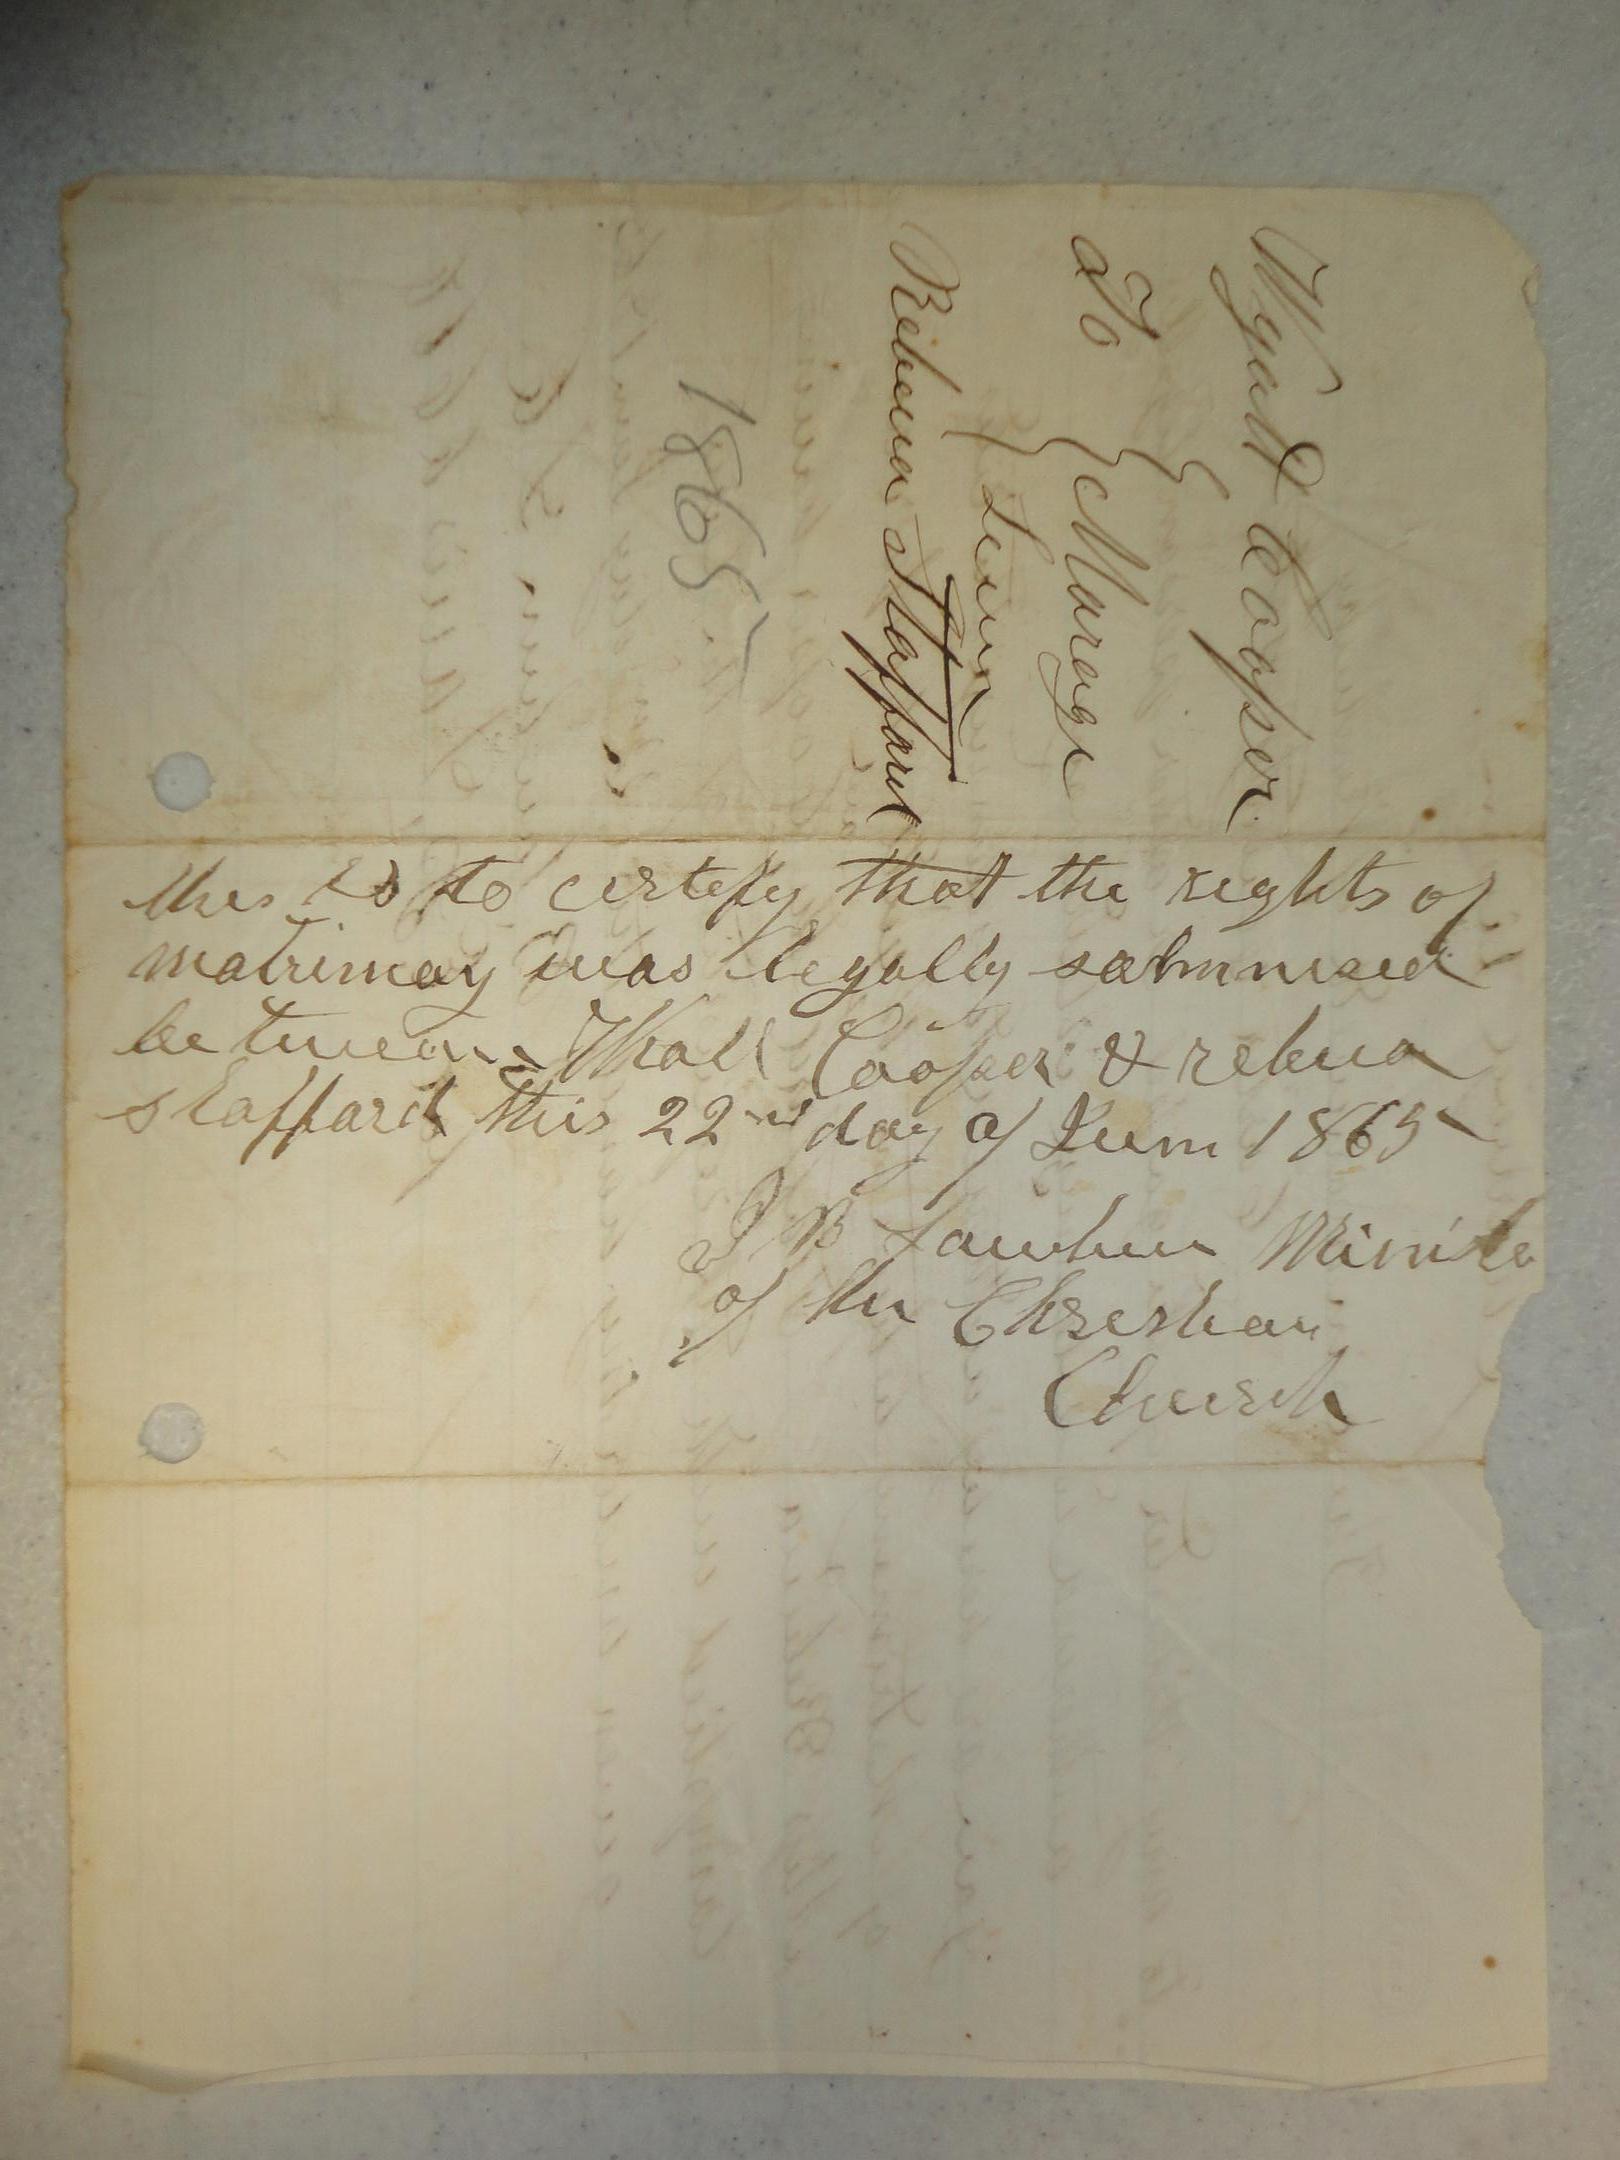 Wyatt Cooper
To } Marage
} Lisun
Rebecca Staffard
1865
this is to certefy that the reights of
matrimoy was legally
between Cooper & rebeca
staffard this 22nd day of Jum 1865
J B Minister
of the Chrestian
Church